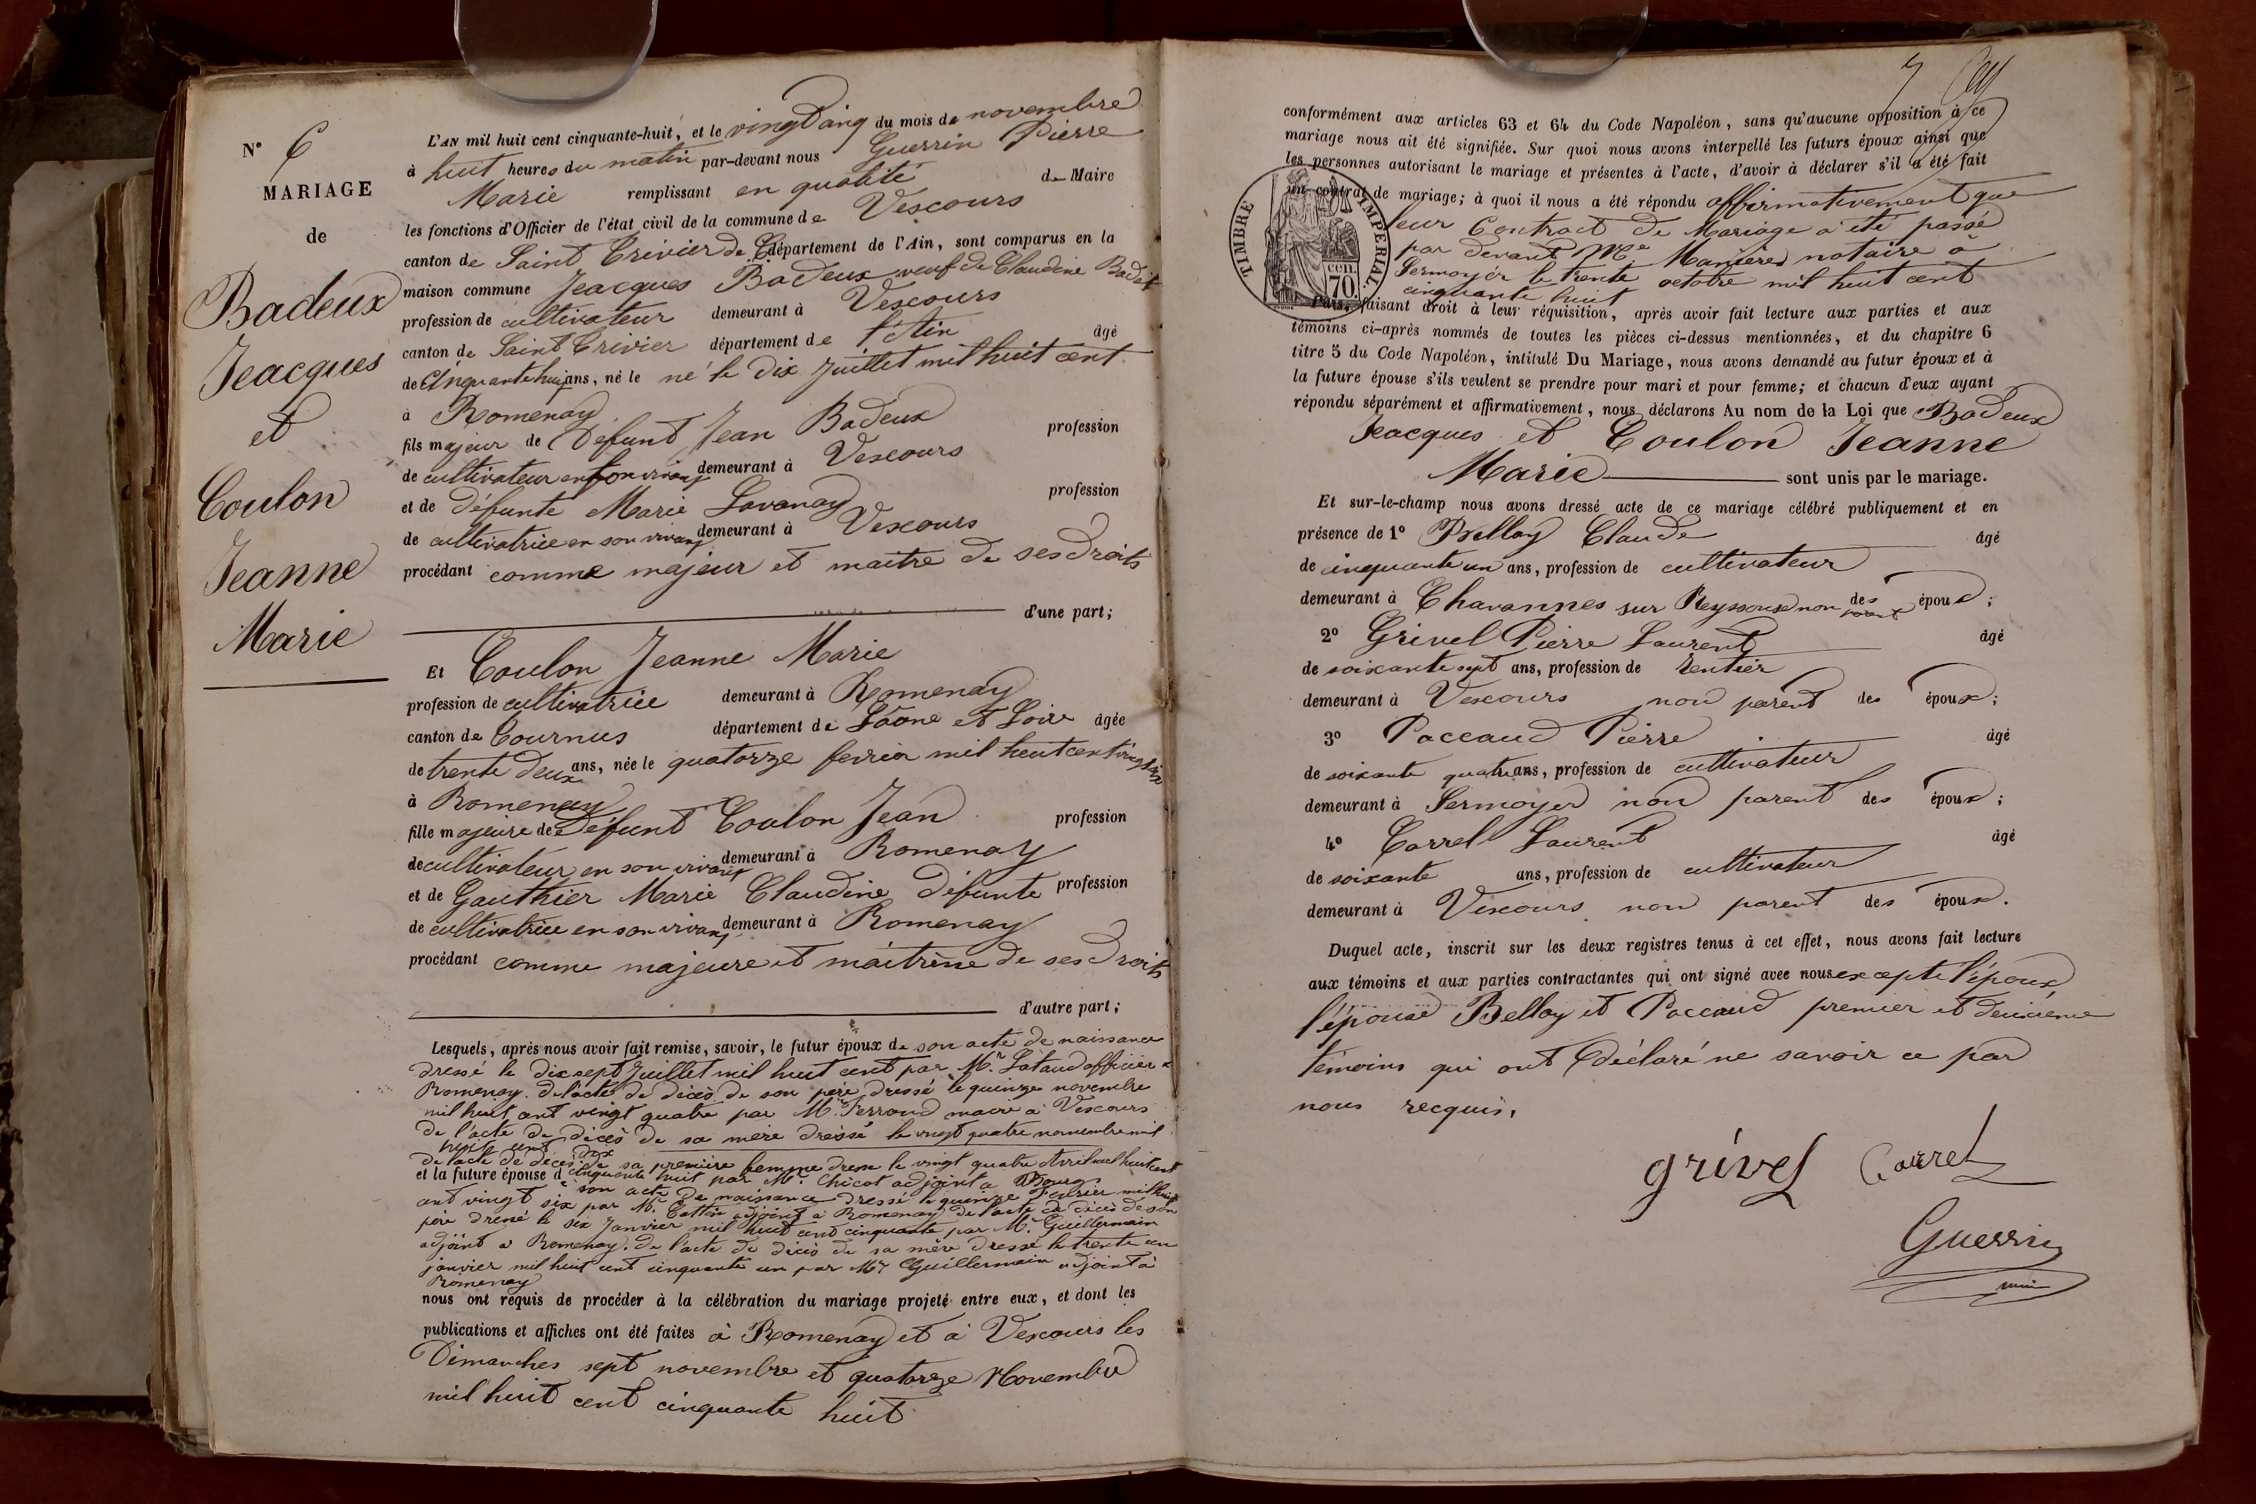 N° 6
MARIAGE
de
Badeux
Jeacques
et
Coulon
Jeanne
Marie
L'AN mil huit cent cinquante-huit, et le vingt cinq du mois de novembre
à huit heures du matin par-devant nous Guerrin Pierre
Marie remplissant en qualité de Maire
les fonctions d'Officier de l'état civil de la commune de Vescours
canton de Saint Trivier de C. département de l'Ain, sont comparus en la
maison commune Jeacques Badeux veuf de Claudine Badet
profession de cultivateur demeurant à Vescours
canton de Saint Trivier département de l'Ain âgé
de Cinquante huit ans, né le né le dix Juillet mil huit cent
à Romenay
fils majeur de Défunt Jean Badeux profession
de cultivateur en son vivant demeurant à Vescours
et de défunte Marie Lavanay profession
de cultivatrice en son vivant demeurant à Vescours
procédant comme majeur et maitre de ses droits
d'une part;
Et Coulon Jeanne Marie
profession de cultivatrice demeurant à Romenay
canton de Tournus département de Sâone et Loire âgée
de trente deux ans, née le quatorze fevrier mil huit cent vingt six
à Romenay
fille majeure de Défunt Coulon Jean profession
de cultivateur en son vivant demeurant à Romenay
et de Gauthier Marie Claudine défunte profession
de cultivatrice en son vivant demeurant à Romenay
procédant comme majeure et maitresse de ses droits
d'autre part;
Lesquels, après nous avoir fait remise, savoir, le futur époux de son acte de naissance
dressé le dix sept Juillet mil huit cent par Mr. Lataud officier a
Romenay. de l'acte de décès de son père dressé le quinze novembre
mil huit cent vingt quatre par Mr. Ferraud maire à Vescours
de l'acte de décès de sa mère dressé le vingt quatre novembre mil
huit cent dix
de l'acte de décès de sa première femme dressé le vingt quatre Avril mil huit cent
et la future épouse d cinquante huit par Mr. Chicot adjoint a Bourg
e son acte de naissance dressé le quinze Fevrier mil huit
cent vingt six par Mr. adjoint à Romenay de l'acte de décès de son
père dressé le six Janvier mil huit cent cinquante par Mr. Guillermain
adjoint a Romenay. de l'acte de décès de sa mère dressé le trente un
janvier mil huit cent cinquante un par Mr Guillermain adjoint à
Romenay
nous ont requis de procéder à la célébration du mariage projeté entre eux, et dont les
publications et affiches ont été faites à Romenay et à Vescours les
Dimanches sept novembre et quatorze Novembre
mil huit cent cinquante huit
7
conformément aux articles 63 et 64 du Code Napoléon, sans qu'aucune opposition à ce
mariage nous ait été signifiée. Sur quoi nous avons interpellé les futurs époux ainsi que
les personnes autorisant le mariage et présentes à l'acte, d'avoir à déclarer s'il a été fait
un contrat de mariage; à quoi il nous a été répondu affirmativement que
leur Contract de Mariage a été passé
par devant Me. notaire à
Sermoyer le trente octobre mil huit cent
cinquante huit
TIMBRE IMPERIAL
70 cen.
Puis, faisant droit à leur réquisition, après avoir fait lecture aux parties et aux
témoins ci-après nommés de toutes les pièces ci-dessus mentionnées, et du chapitre 6
titre 5 du Code Napoléon, intitulé Du Mariage, nous avons demandé au futur époux et à
la future épouse s'ils veulent se prendre pour mari et pour femme; et chacun d'eux ayant
répondu séparément et affirmativement, nous déclarons Au nom de la Loi que Badeux
Jeacques et Coulon Jeanne
Marie sont unis par le mariage.
Et sur-le-champ nous avons dressé acte de ce mariage célébré publiquement et en
présence de 1° Bellay Claude âgé
de cinquante un ans, profession de cultivateur
demeurant à Chavannes sur Reyssouze non parent des époux;
2° Grivel Pierre Laurent âgé
de soixante sept ans, profession de rentier
demeurant à Vescours non parent des époux;
3° Paccaud Pierre âgé
de soixante quatre ans, profession de cultivateur
demeurant à Sermoyer non parent des époux;
4° Carrel Laurent âgé
de soixante ans, profession de cultivateur
demeurant à Vescours non parent des époux.
Duquel acte, inscrit sur les deux registres tenus à cet effet, nous avons fait lecture
aux témoins et aux parties contractantes qui ont signé avec nous excepte l'époux,
l'épouse Bellay et Paccaud premier et deuxième
témoins qui ont déclaré ne savoir ce par
nous recquis.
Grivel Carrel
Guerrin
maire